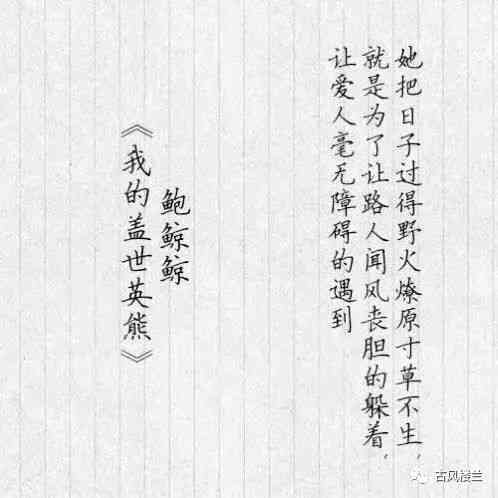 她把日子过得野火燎原寸草不生，
就是为了让路人闻风丧胆的躲着，
让爱人毫无障碍的遇到
鲍鲸鲸
《我的盖世英熊》
古风楼兰